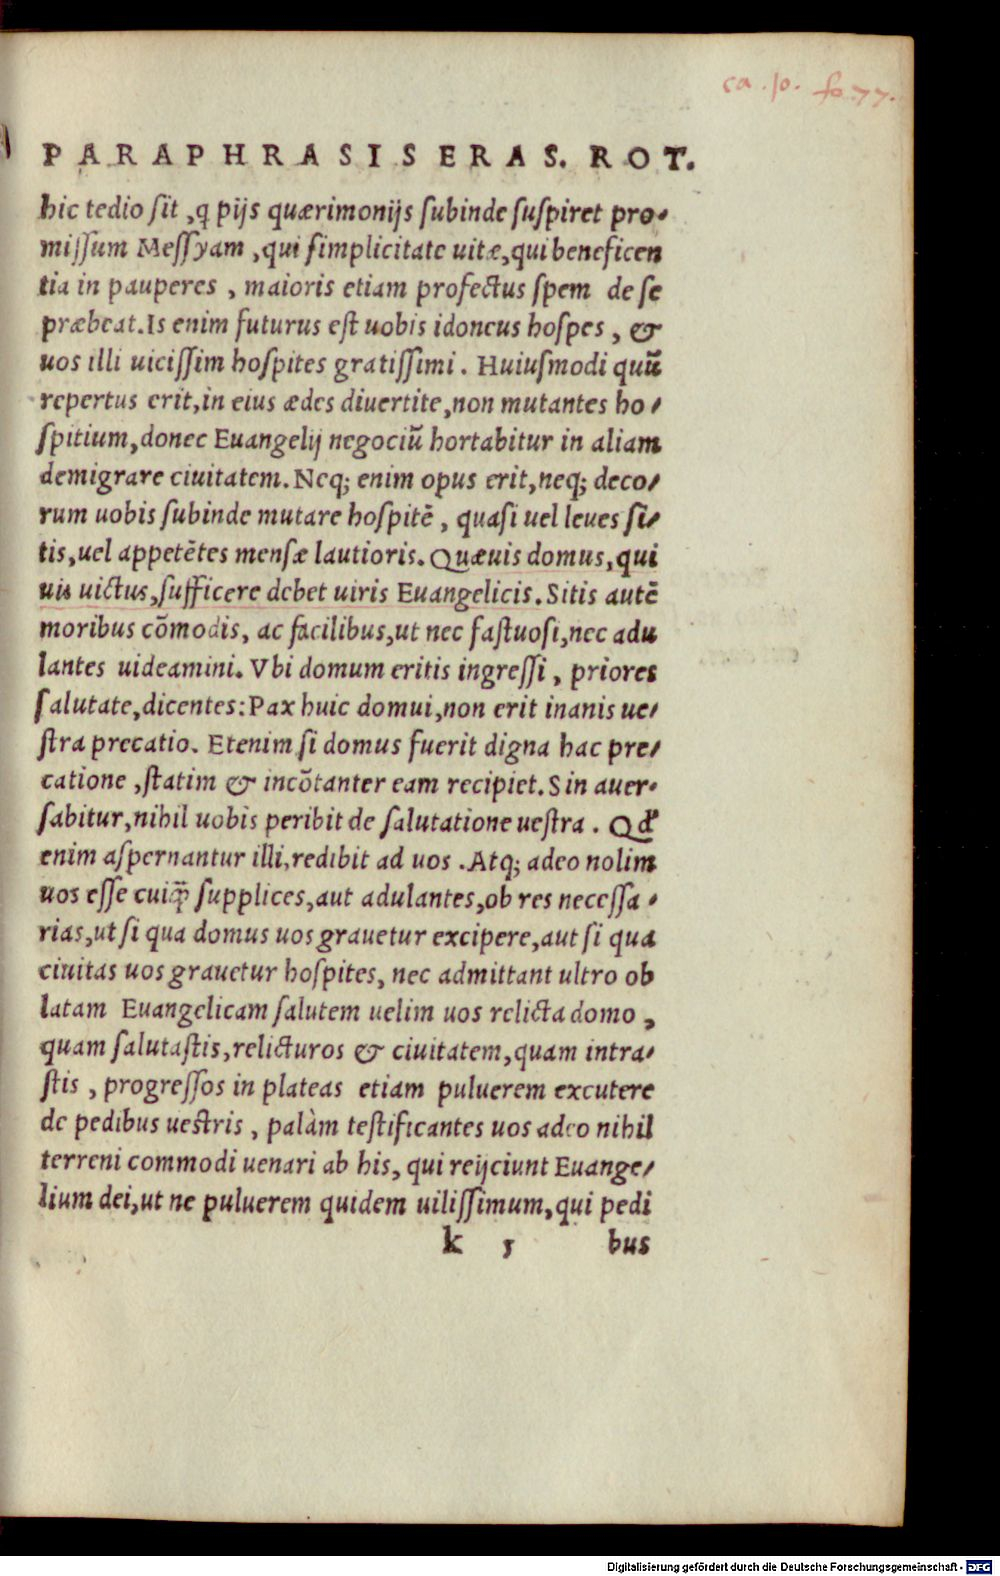 ca. 10. fo 77.
PARAPHRASIS ERAS. ROT.
hic tedio sit, ꝙ pijs quærimonijs subinde suspiret pro-
missum Messyam, qui simplicitate uitæ, qui beneficen
tia in pauperes, maioris etiam profectus spem de se
præbeat. Is enim futurus est uobis idoneus hospes, &
uos illi uicissim hospites gratissimi. Huiusmodi quū
repertus erit, in eius ædes diuertite, non mutantes ho-
spitium, donec Euangelij negociū hortabitur in aliam
demigrare ciuitatem. Neq; enim opus erit, neq; deco-
rum uobis subinde mutare hospitē, quasi uel leues si-
tis, uel appetētes mensæ lautioris. Quæuis domus, qui
uis uictus, sufficere debet uiris Euangelicis. Sitis autē
moribus cōmodis, ac facilibus, ut nec fastuosi, nec adu
lantes uideamini. Vbi domum eritis ingressi, priores
salutate, dicentes: Pax huic domui, non erit inanis ue-
stra precatio. Etenim si domus fuerit digna hac pre-
catione, statim & incōtanter eam recipiet. Sin auer-
sabitur, nihil uobis peribit de salutatione uestra. Qd'
enim aspernantur illi, redibit ad uos. Atq; adeo nolim
uos esse cuiꝙ̃ supplices, aut adulantes, ob res necessa-
rias, ut si qua domus uos grauetur excipere, aut si qua
ciuitas uos grauetur hospites, nec admittant ultro ob
latam Euangelicam salutem uelim uos relicta domo,
quam salutastis, relicturos & ciuitatem, quam intra-
stis, progressos in plateas etiam puluerem excutere
de pedibus uestris, palàm testificantes uos adeo nihil
terreni commodi uenari ab his, qui reijciunt Euange-
lium dei, ut ne puluerem quidem uilissimum, qui pedi
k 5 bus
Digitalisierung gefördert durch die Deutsche Forschungsgemeinschaft - DFG